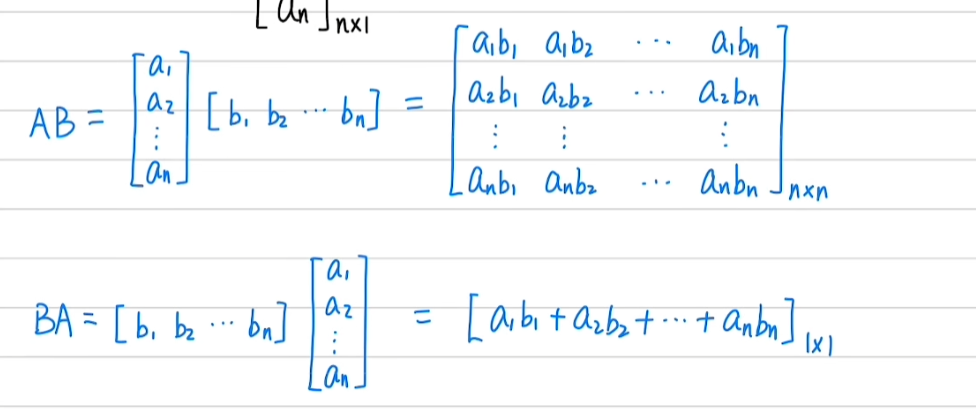 [aₙ]ₙₓ₁
AB = [a₁ a₂ ⋮ aₙ] [b₁ b₂ ⋯ bₙ] = [a₁b₁ a₁b₂ ⋯ a₁bₙ
a₂b₁ a₂b₂ ⋯ a₂bₙ
⋮ ⋮ ⋮
aₙb₁ aₙb₂ ⋯ aₙbₙ]ₙₓₙ
BA = [b₁ b₂ ⋯ bₙ] [a₁ a₂ ⋮ aₙ] = [a₁b₁ + a₂b₂ + ⋯ + aₙbₙ]₁ₓ₁